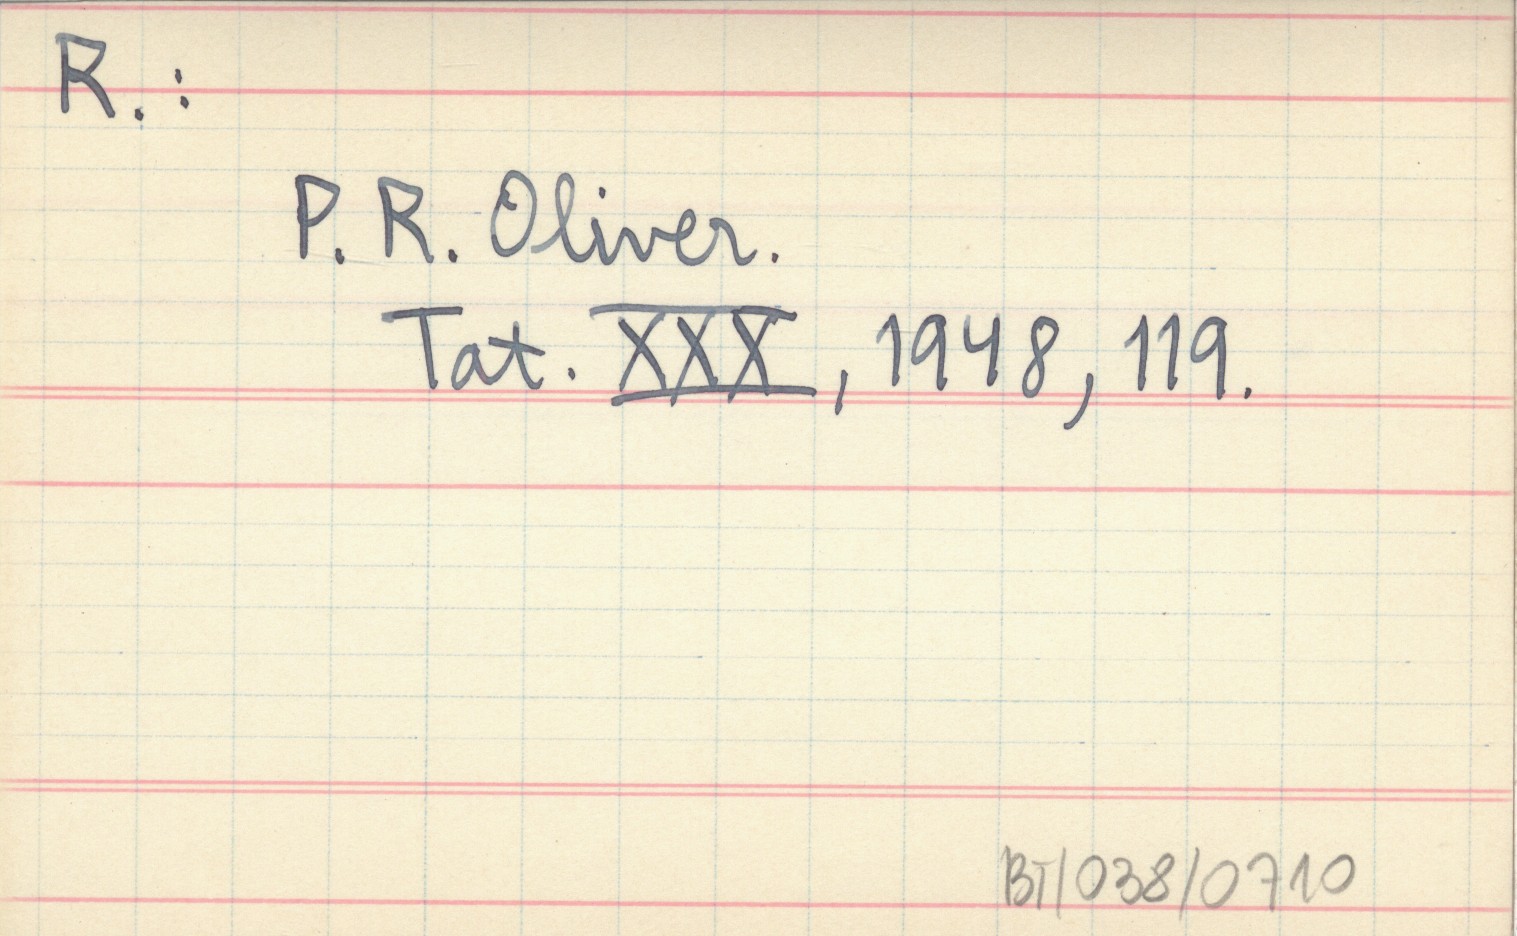 R.:
P. R. Oliver.
Tat. XXX, 1948, 119.
BT/038/0710